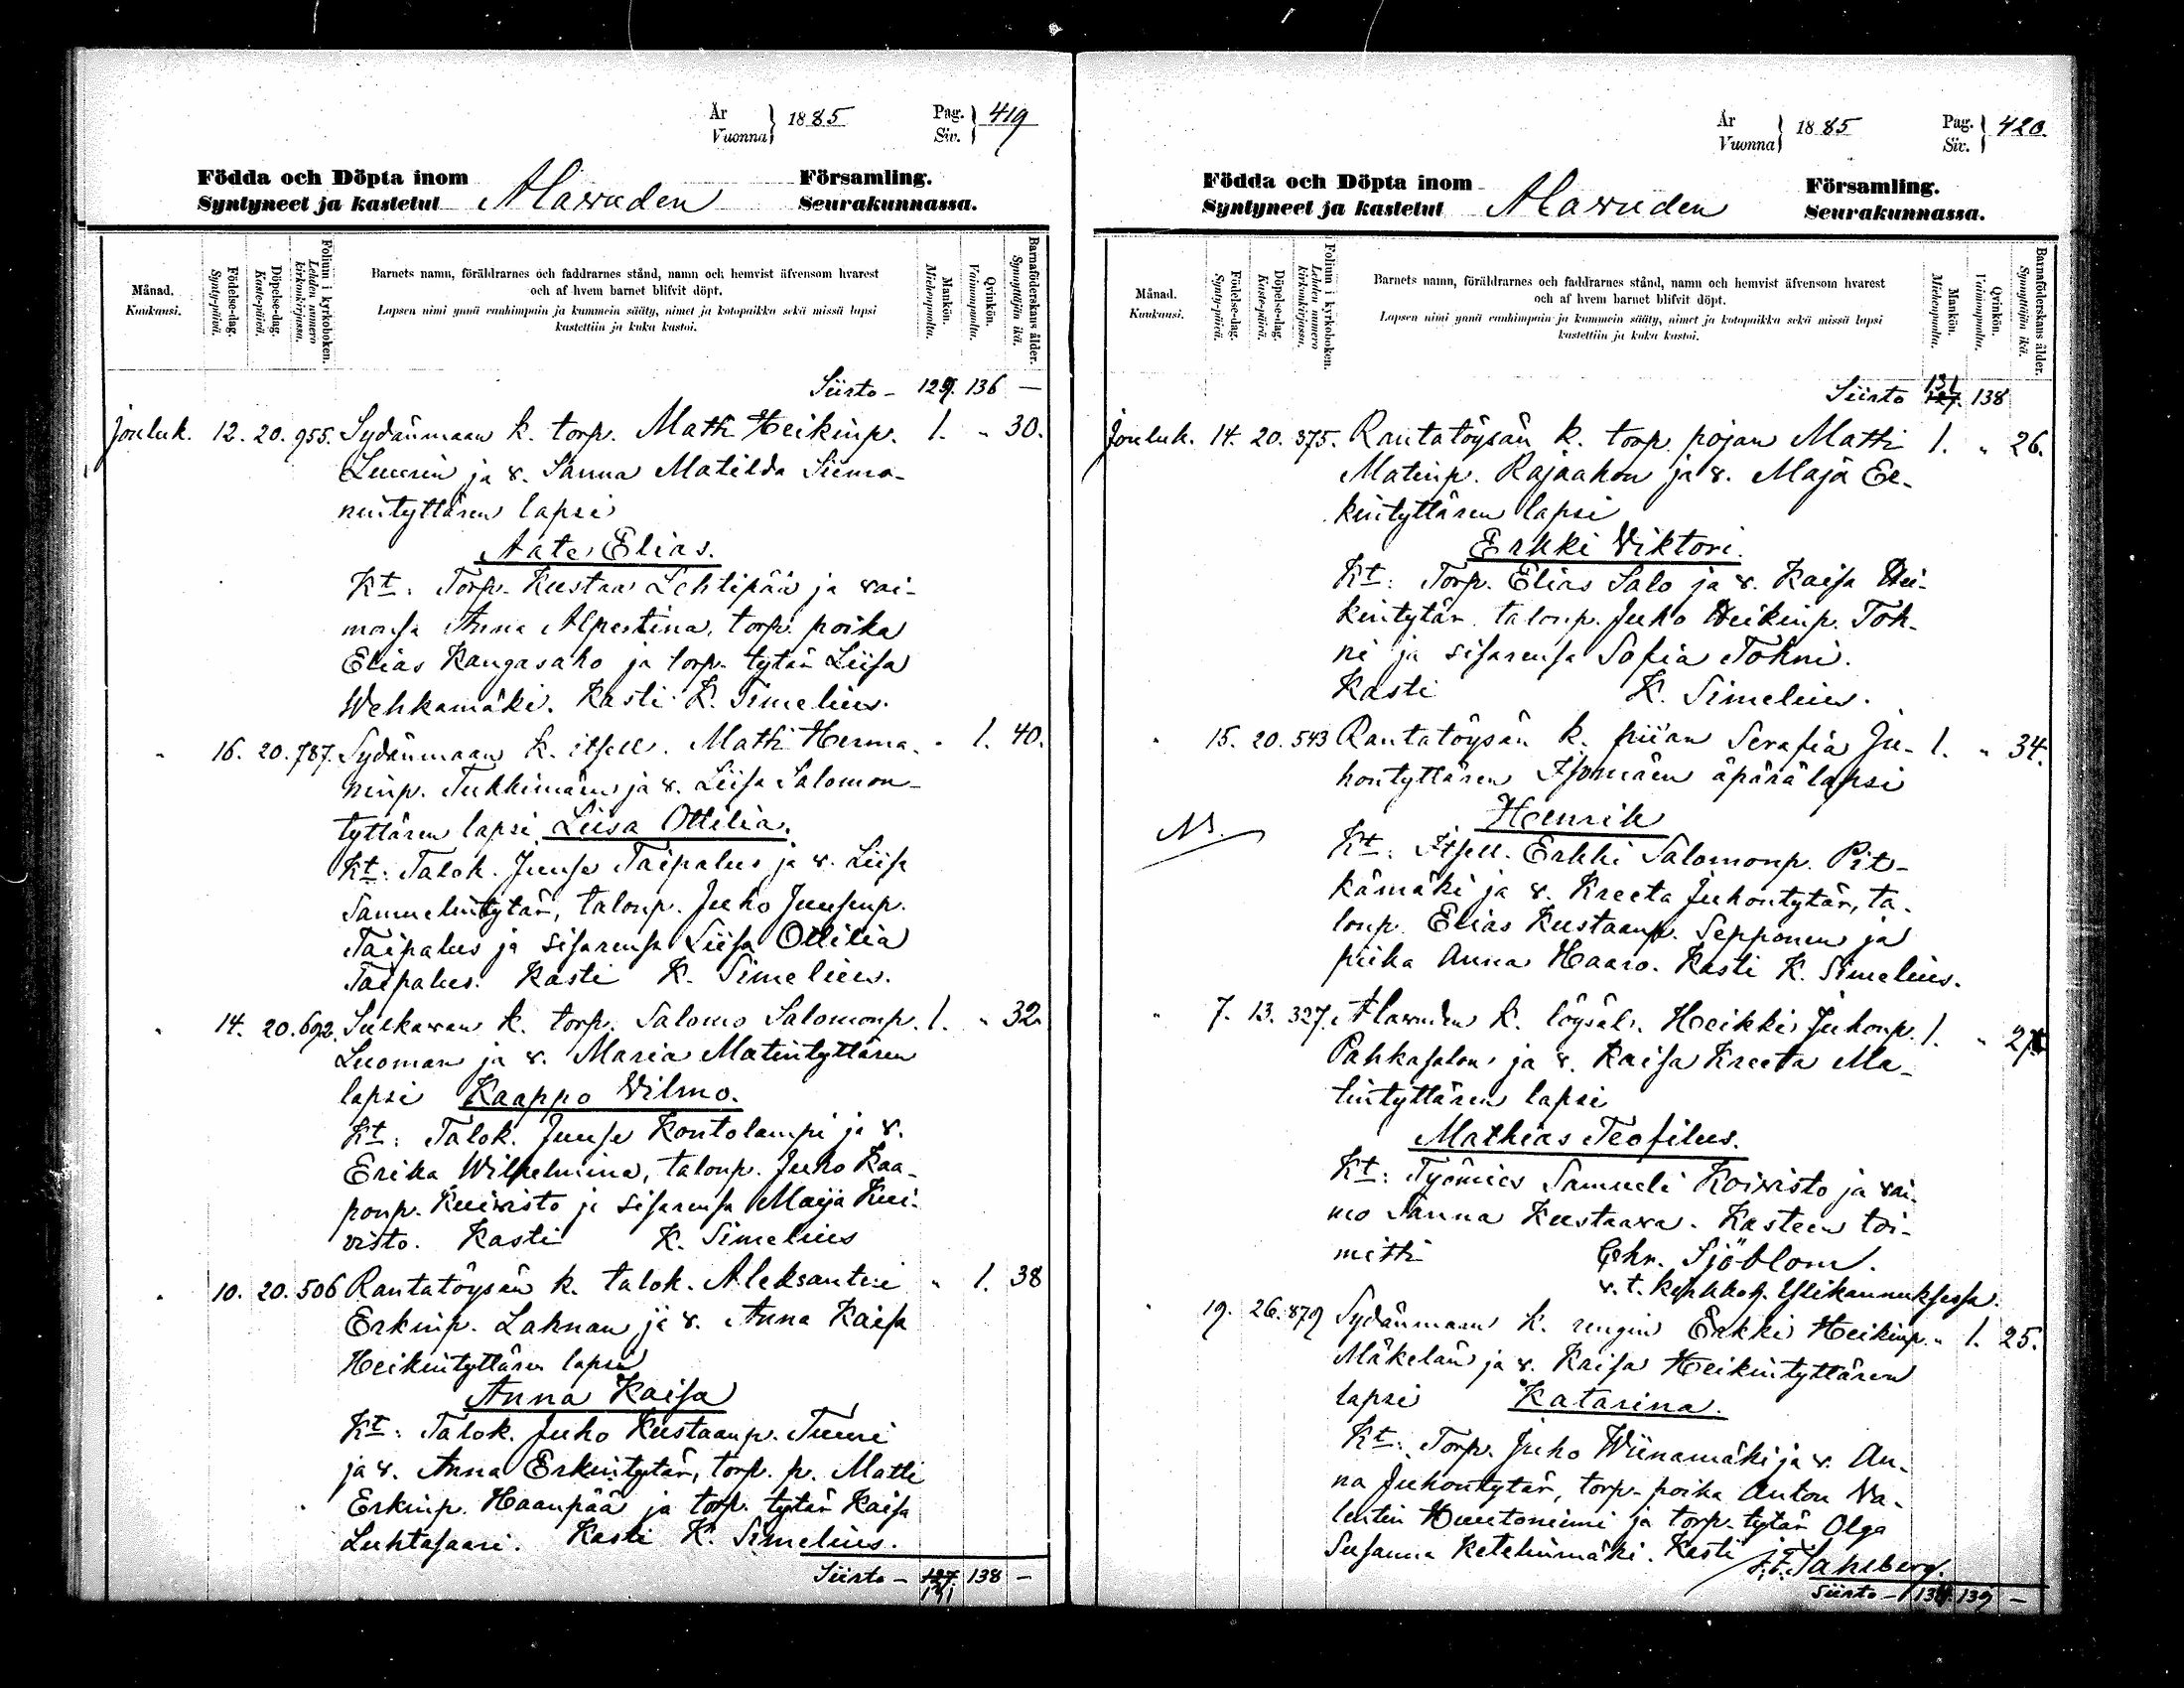 År
Vuonna } 1885
Pag.
Siv. } 419
Födda och Döpta inom Alavuden Församling.
Syntyneet ja kastetut Seurakunnassa.
Månad.
Kuukausi.
Födelse-dag.
Synty-päivä.
Döpelse-dag.
Kaste-päivä.
Folium i kyrkoboken.
Lehden numero kirkonkirjassa.
Barnets namn, föräldrarnes och faddrarnes stånd, namn och hemvist äfvensom hvarest
och af hvem barnet blifvit döpt.
Lapsen nimi ynnä vanhimpain ja kummein sääty, nimet ja kotopaikka sekä missä lapsi
kastettiin ja kuka kastoi.
Mankön.
Miehenpuolta.
Qvinkön.
Vaimonpuolta.
Barnaföderskans ålder.
Synnyttäjän ikä.
Siirto - 129. 136 -
Jouluk. 12. 20. 955. Sydänmaan k. torp. Matti Heikinp. 1. " 30.
ja v. Sanna Matilda Siemo-
nintyttären lapsi
Aate Elias.
Kt: Torp. Kustaa Lehtipää ja vai-
monsa Anna Alpertina, torp. poika
Elias Kangasaho ja torp. tytär Liisa
Wehkamäki. Kasti K. Simelius.
" 16. 20. 787. Sydänmaan k. itsell. Matti Herma- " 1. 40.
ninp. Tukkimäen ja v. Liisa Salomon-
tyttären lapsi Liisa Ottilia.
Kt: Talok. Juuse Taipalus ja v. Liisa
Samuelintytär, talonp. Juho Juusenp.
Taipalus ja sisarensa Liisa Ottilia
Taipalus. Kasti K. Simelius.
" 14. 20. 692. Sulkavan k. torp. Salomo Salomonp. 1. " 32.
Luoman ja v. Maria Matintyttären
lapsi Kaappo Vilmo.
Kt: Talok. Juuse Kontolampi ja v.
Erika Wilhelmina, talonp. Juho Kaa-
ponp. Kuivisto ja sisarensa Maija Kui-
visto. Kasti K. Simelius
" 10. 20. 506 Rantatöysän k. talok. Aleksanteri " 1. 38
Erkinp. Lahnan ja v. Anna Kaisa
Heikintyttären lapsi
Anna Kaisa
Kt: Talok. Juho Kustaanp. Tuuri
ja v. Anna Erkintytär, torp. p. Matti
Erkinp. Haanpää ja torp. tytär Kaisa
Luhtasaari. Kasti K. Simelius.
Siirto - 127. 138 -
131
År
Vuonna } 1885
Pag.
Siv. } 420.
Födda och Döpta inom Alavuden Församling.
Syntyneet ja kastetut Seurakunnassa.
Månad.
Kuukausi.
Födelse-dag.
Synty-päivä.
Döpelse-dag.
Kaste-päivä.
Folium i kyrkoboken.
Lehden numero kirkonkirjassa.
Barnets namn, föräldrarnes och faddrarnes stånd, namn och hemvist äfvensom hvarest
och af hvem barnet blifvit döpt.
Lapsen nimi ynnä vanhimpain ja kummein sääty, nimet ja kotopaikka sekä missä lapsi
kastettiin ja kuka kastoi.
Mankön.
Miehenpuolta.
Qvinkön.
Vaimonpuolta.
Barnaföderskans ålder.
Synnyttäjän ikä.
131
Siirto 127. 138
Jouluk. 14. 20. 375. Rantatöysän k. torp. pojan Matti 1. " 26.
Matinp. Rajaahon ja v. Maja Ee-
kintyttären lapsi
Erkki Viktori.
Kt: Torp. Elias Salo ja v. Kaisa Hei-
kintytär, talonp. Juho Heikinp. Toh-
ni ja sisarensa Sofia Tohni.
Kasti K. Simelius.
" 15. 20. 543 Rantatöysän k. piian Serafia Ju- 1. " 34.
hontyttären Isomäen äpärälapsi
Henrik
Kt: Itsell. Erkki Salomonp. Pit-
kämäki ja v. Kreeta Juhontytär, ta-
lonp. Elias Kustaanp. Sepponen ja
piika Anna Haaro. Kasti K. Simelius.
" 7. 13. 327. Alavuden k. löysäl. Heikki Juhonp. 1. "
Pahkasalon ja v. Kaisa Kreeta Ma-
tintyttären lapsi
Mathias Teofilus.
Kt: Työmies Samueli Koivisto ja vai-
mo Sanna Kustaava. Kasteen toi-
mitti Chr. Sjöblom.
v. t. Ylikannuksessa.
" 19. 26. 879 Sydänmaan k. rengin Erkki Heikinp. " 1. 25.
Mäkelän ja v. Kaisa Heikintyttären
lapsi Katarina.
Kt: Torp. Juho Wiinamäki ja v. An-
na Juhontytär, torp. poika Anton Va-
lentin Huutoniemi ja torp. tytär Olga
Susanna Ketelinmäki. Kasti
Sahlberg.
Siirto - 134. 139 -